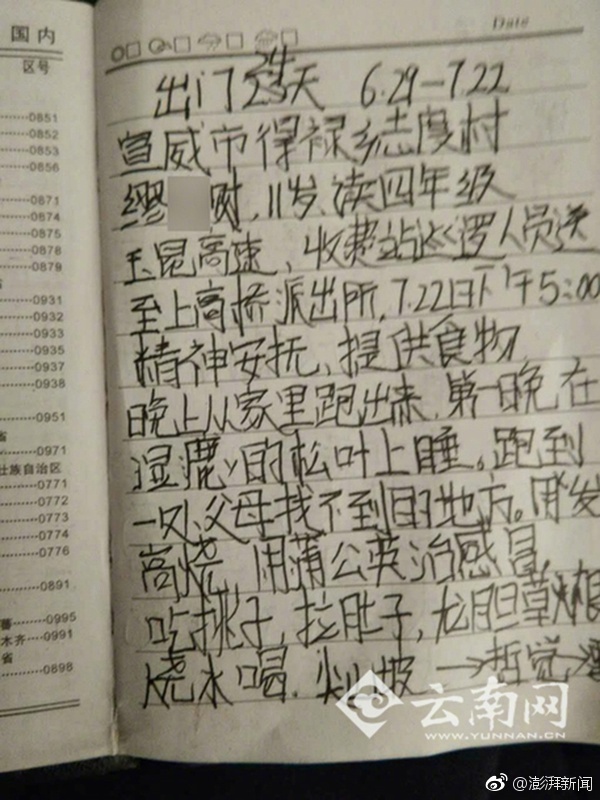 国内
区号
0851
0852
0853
0856
0871
0874
0875
0878
0879
0931
0932
0933
0935
0937
0938
0951
省
0971
壮族自治区
0771
0772
0773
0774
0776
0891
0995
木齐 0991
省
0898
Date
出门24天 6.29—7.22
宣威市得禄乡志度村
缪 财,11岁、读四年级
玉昆高速,收费站巡逻人员送
至上高桥派出所,7.22日下午5:00
精神安抚、提供食物
晚上从家里跑出来,第一晚在
湿漉y的松叶上睡。跑到
一处、父母找不到的地方。用发
高烧,用蒲公英治感冒,
吃挑子,拉肚子,龙胆草根
烧水喝.尖山坡→哲觉
云南网
WWW.YUNNAN.CN
@澎湃新闻